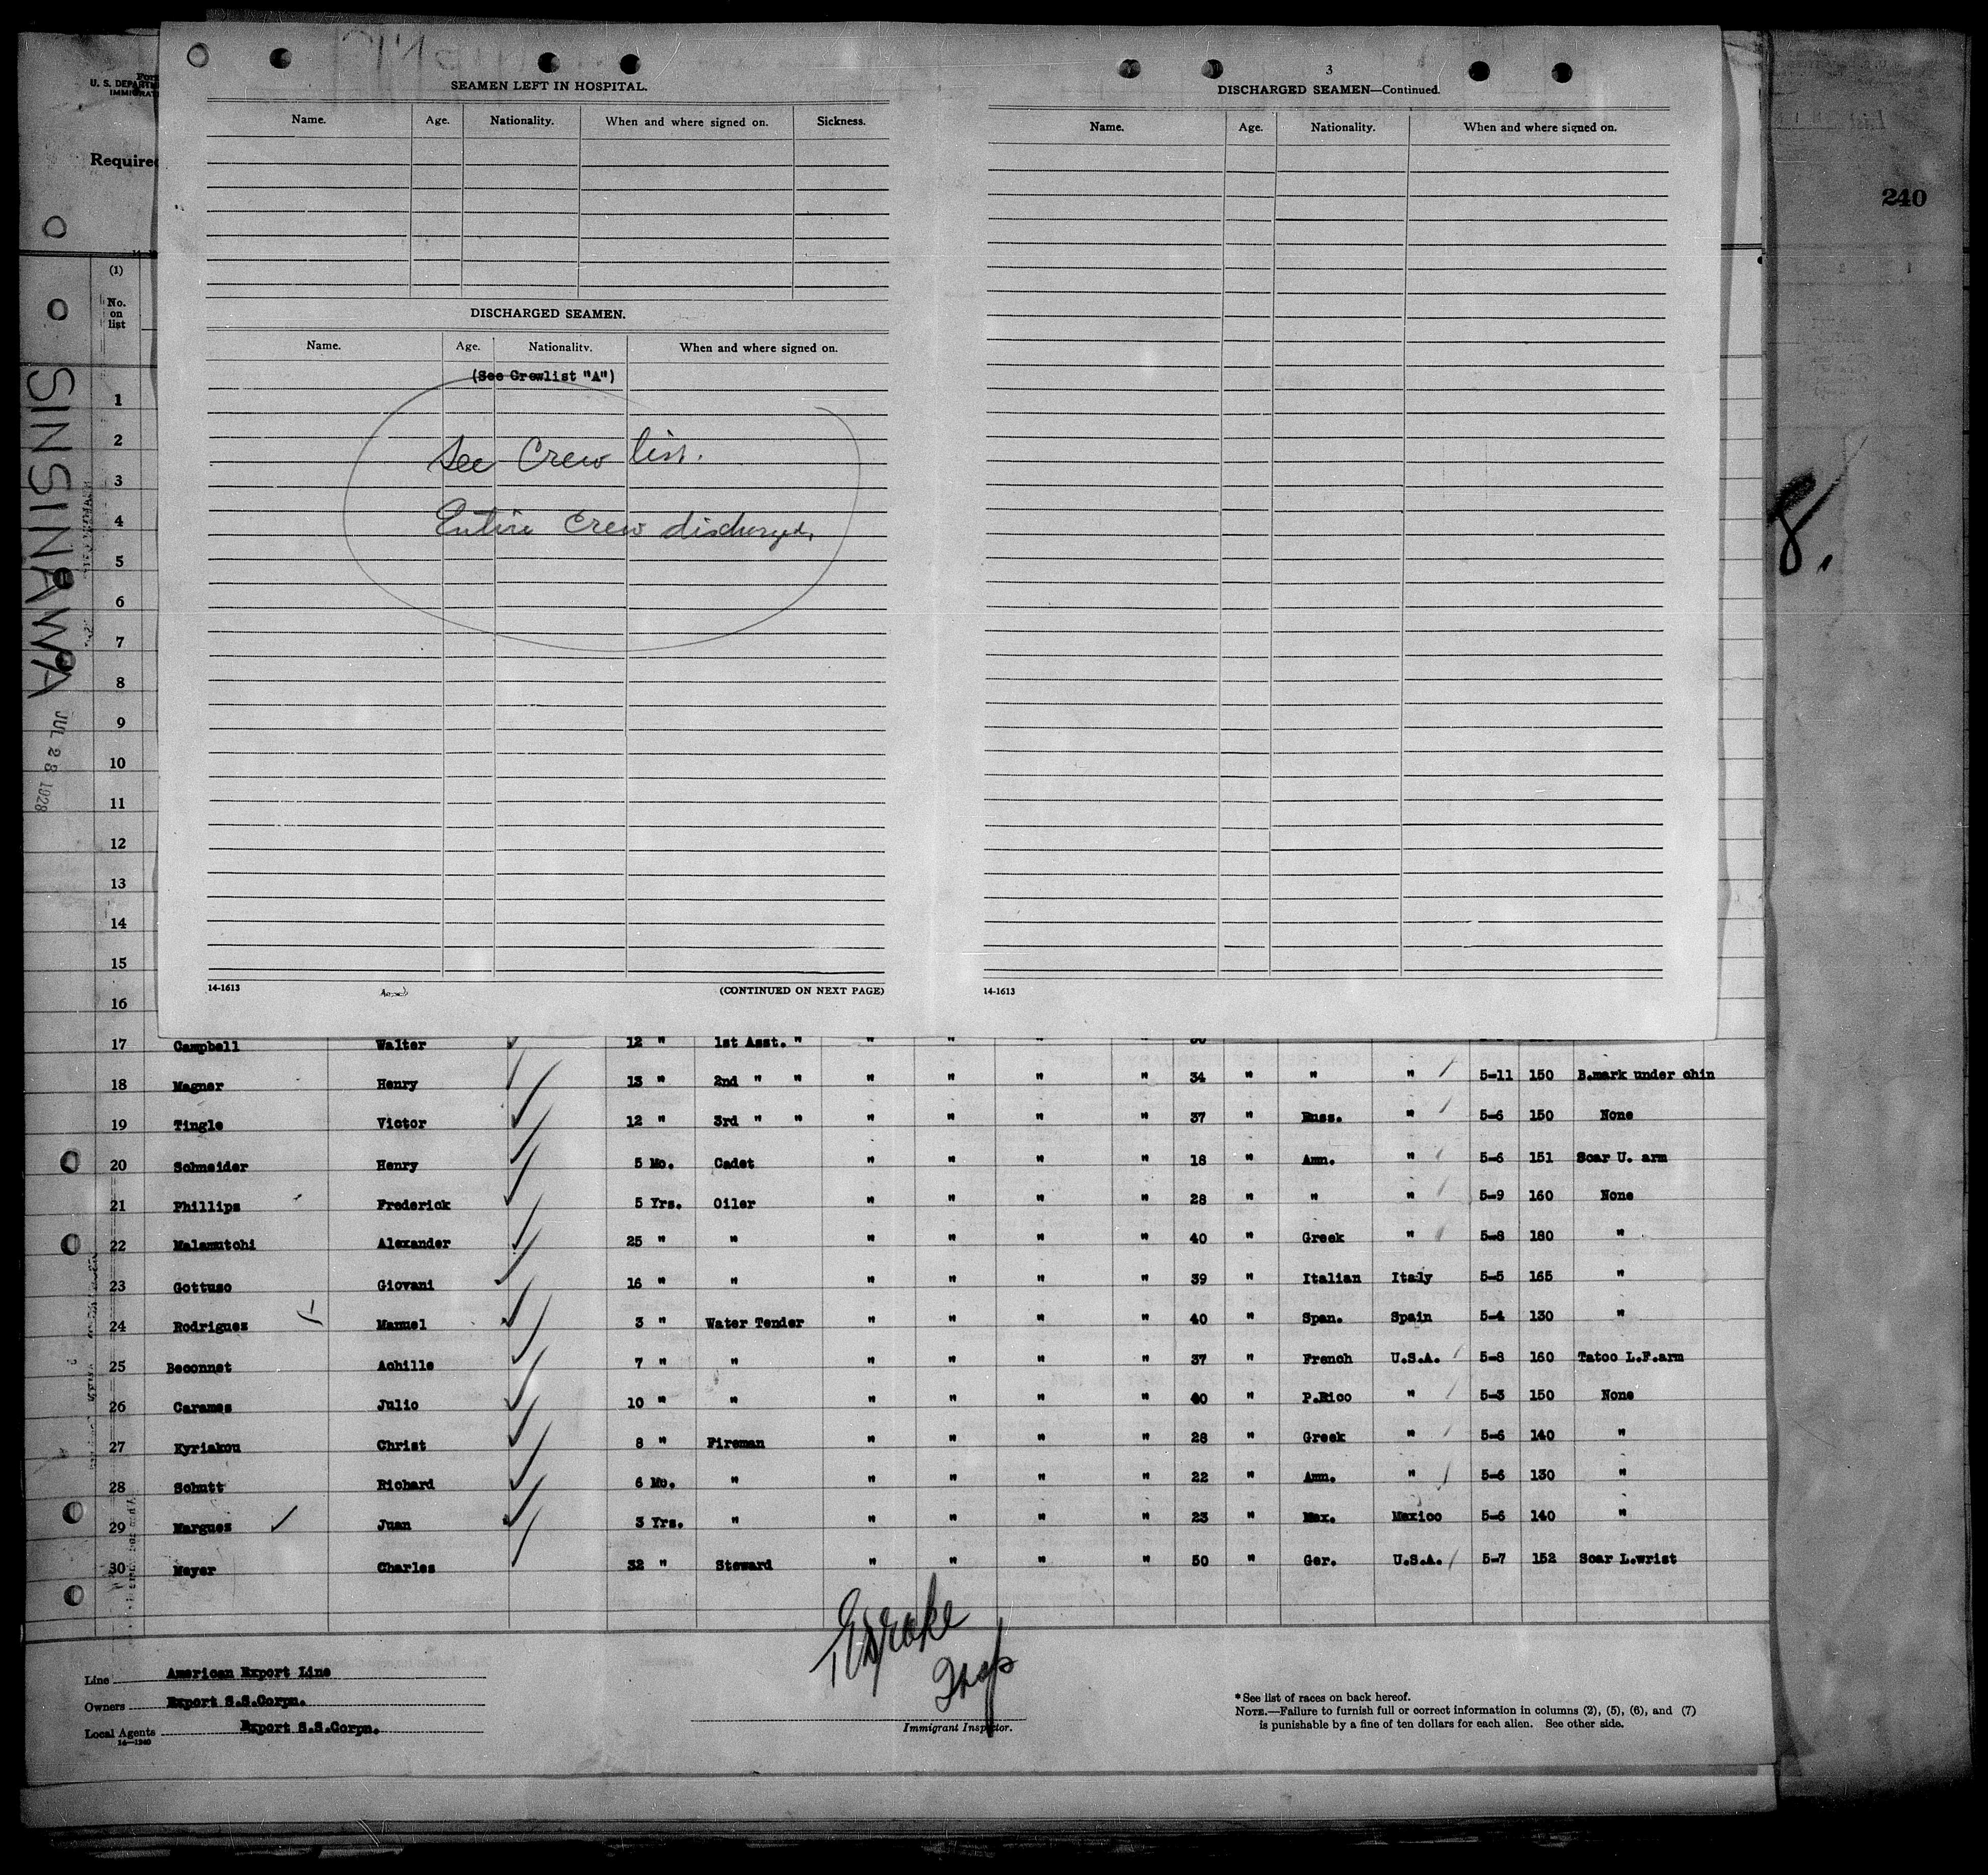 U. S. DEPARTM
IMMIGRAT
Required
240
(1)
No.
on
list
SINSINAWA
JUL 28 1928
8.
SEAMEN LEFT IN HOSPITAL.
Name. Age. Nationality. When and where signed on. Sickness.
DISCHARGED SEAMEN.
Name. Age. Nationality. When and where signed on.
(See Crewlist "A")
See Crew list.
Entire Crew discharged.
14-1613
(CONTINUED ON NEXT PAGE)
3
DISCHARGED SEAMEN—Continued.
Name. Age. Nationality. When and where signed on.
14-1613
1
2
3
4
5
6
7
8
9
10
11
12
13
14
15
16
17 Campbell Walter 12 " 1st Asst. " " " "
18 Magner Henry 13 " 2nd " " " " " " 34 " " " 5-11 150 B.mark under chin
19 Tingle Victor 12 " 3rd " " " " " " 37 " Russ. " 5-6 150 None
20 Schneider Henry 5 Mo. Cadet " " " " 18 " Amn. " 5-6 151 Scar U. arm
21 Phillips Frederick 5 Yrs. Oiler " " " " 28 " " " 5-9 160 None
22 Malamutchi Alexander 25 " " " " " " 40 " Greek " 5-8 180 "
23 Gottuso Giovani 16 " " " " " " 39 " Italian Italy 5-5 165 "
24 Rodriguez Manuel 3 " Water Tender " " " " 40 " Span. Spain 5-4 130 "
25 Beconnet Achille 7 " " " " " " 37 " French U.S.A. 5-8 160 Tatoo L.F.arm
26 Carames Julio 10 " " " " " " 40 " P.Rico " 5-3 150 None
27 Kyriakou Christ 8 " Fireman " " " " 28 " Greek " 5-6 140 "
28 Schutt Richard 6 Mo. " " " " " 22 " Amn. " 5-6 130 "
29 Marguez Juan 3 Yrs. " " " " " 23 " Mex. Mexico 5-6 140 "
30 Meyer Charles 32 " Steward " " " " 50 " Ger. U.S.A. 5-7 152 Scar L.wrist
Line American Export Line
Owners Export S.S.Corpn.
Local Agents Export S.S.Corpn.
14—1240
Insp
Immigrant Inspector.
* See list of races on back hereof.
NOTE.—Failure to furnish full or correct information in columns (2), (5), (6), and (7)
is punishable by a fine of ten dollars for each alien. See other side.